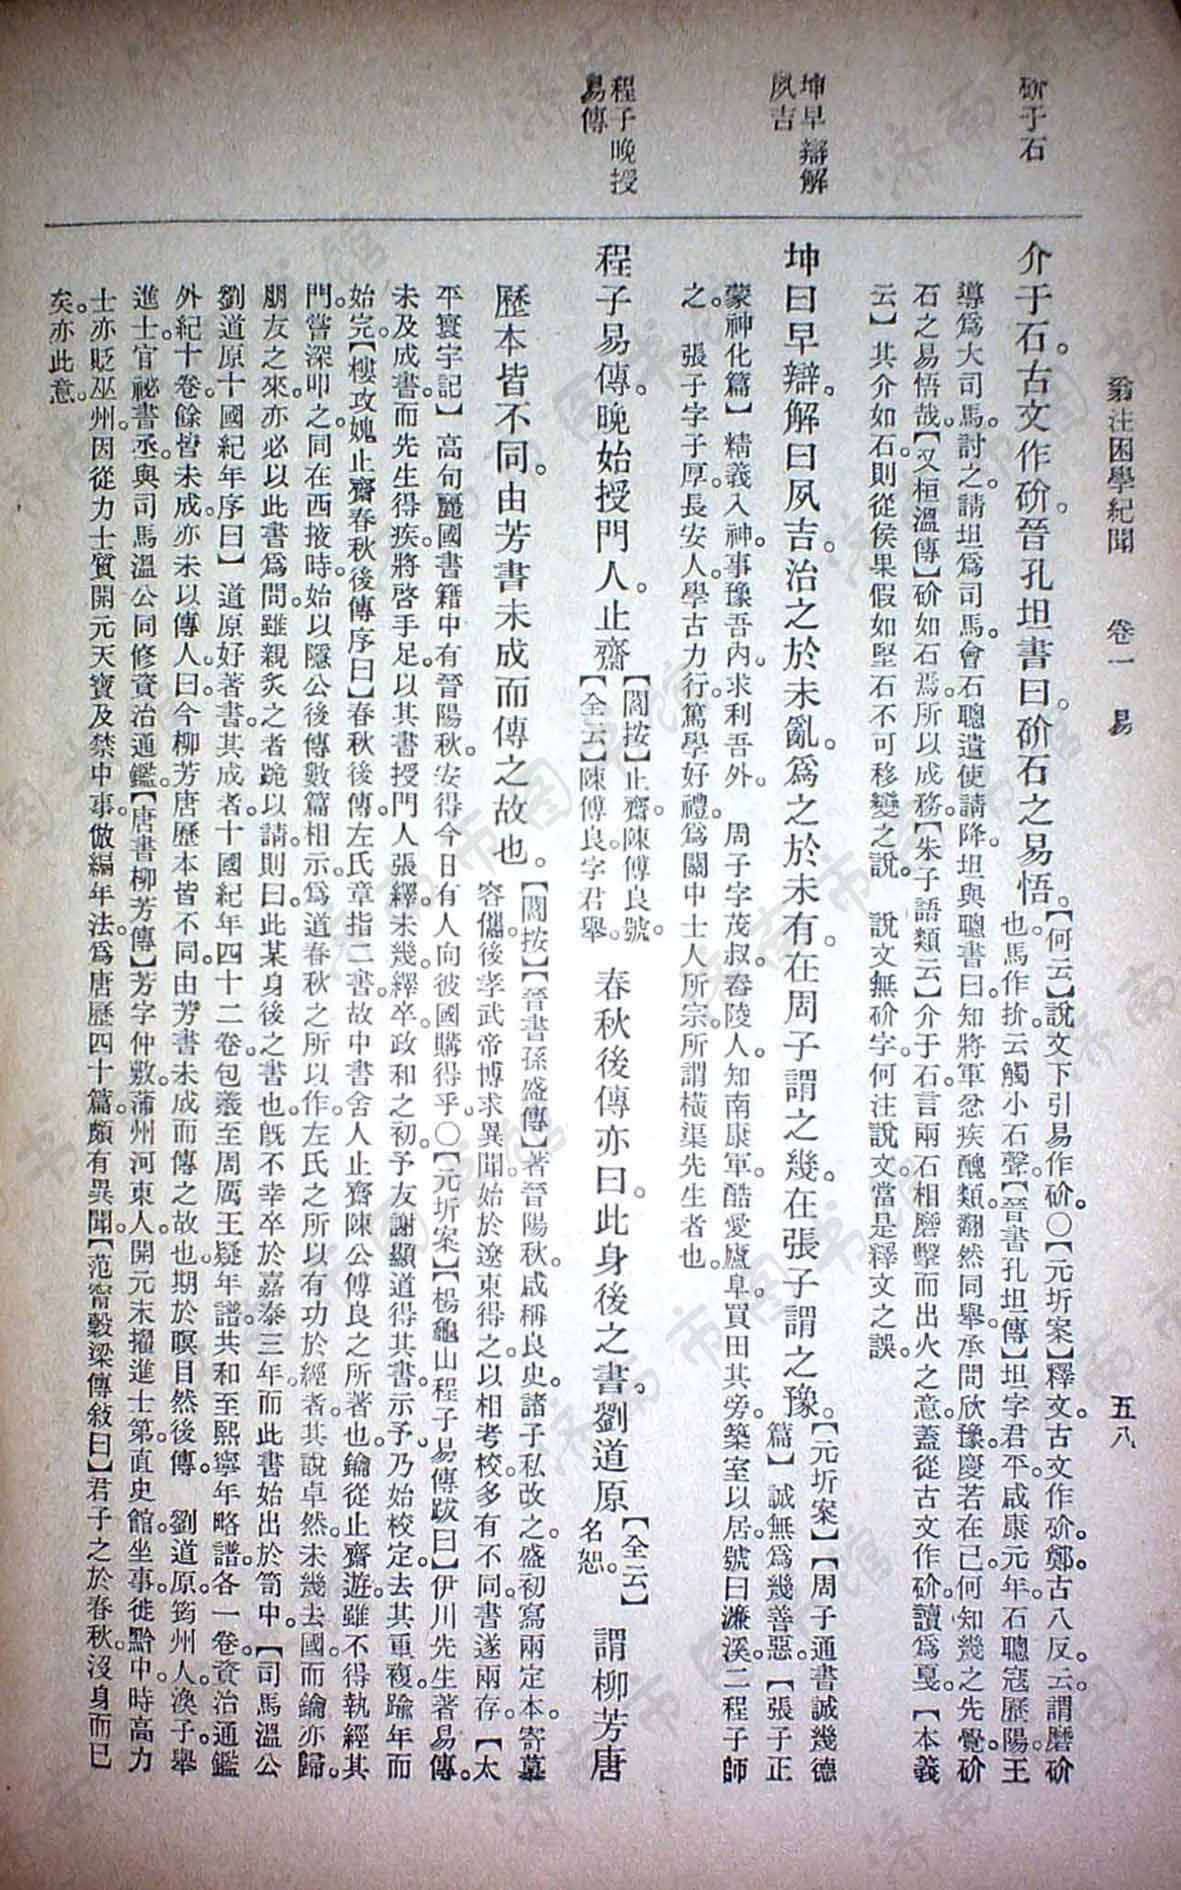 翁注困學紀聞　卷一　易　五八
砎于石
介于石。古文作砎。晉孔坦書曰。砎石之易悟。
【何云】說文下引易作砎。〇【元圻案】釋文。古文作砎。鄭古八反。云。謂磨砎
也。馬作扴。云觸小石聲。【晉書孔坦傳】坦字君平。咸康元年。石聰寇歷陽。王
導爲大司馬。討之。請坦爲司馬。會石聰遣使請降。坦與聰書曰。知將軍忿疾醜類。翻然同舉。承問欣豫。慶若在己。何知幾之先覺。砎
石之易悟哉。【又桓溫傳】砎如石焉。所以成務。【朱子語類云】介于石。言兩石相磨擊而出火之意。蓋從古文作砎。讀爲戛。【本義
云】其介如石。則從侯果假如堅石不可移變之說。　說文無砎字。何注說文。當是釋文之誤。
坤早辯解
夙吉
坤曰早辯。解曰夙吉。治之於未亂。爲之於未有。在周子謂之幾。在張子謂之豫。
【元圻案】【周子通書誠幾德
篇】　誠無爲。幾善惡。【張子正
蒙神化篇】　精義入神。事豫吾內。求利吾外。　周子字茂叔。舂陵人。知南康軍。酷愛廬阜。買田其旁。築室以居。號曰濂溪。二程子師
之。　張子字子厚。長安人。學古力行。篤學好禮。爲關中士人所宗。所謂橫渠先生者也。
程子晚授
易傳
程子易傳。晚始授門人。止齋
【閻按】止齋。陳傅良號。
【全云】陳傅良。字君舉。
春秋後傳亦曰。此身後之書。劉道原
【全云】
名恕。
謂柳芳唐
歷本皆不同。由芳書未成而傳之故也。
【閻按】【晉書孫盛傳】著晉陽秋。咸稱良史。諸子私改之。盛初寫兩定本。寄慕
容儁。後孝武帝博求異聞。始於遼東得之。以相考校。多有不同。書遂兩存。【太
平寰宇記】　高句麗國書籍中。有晉陽秋。安得今日有人向彼國購得乎。〇【元圻案】【楊龜山程子易傳跋曰】伊川先生著易傳。
未及成書。而先生得疾。將啓手足。以其書授門人張繹。未幾繹卒。政和之初。予友謝顯道得其書。示予。乃始校定。去其重複。踰年而
始完。【樓攻媿止齋春秋後傳序曰】春秋後傳。左氏章指二書。故中書舍人止齋陳公傅良之所著也。鑰從止齋遊。雖不得執經其
門。嘗深叩之。同在西掖時。始以隱公後傳數篇相示。爲道春秋之所以作。左氏之所以有功於經者。其說卓然。未幾去國。而鑰亦歸。
朋友之來。亦必以此書爲問。雖親炙之者。跪以請。則曰。此某身後之書也。旣不幸卒於嘉泰三年。而此書始出於笥中。【司馬溫公
劉道原十國紀年序曰】　道原好著書。其成者。十國紀年四十二卷。包羲至周厲王疑年譜。共和至熙寧年略譜。各一卷。資治通鑑
外紀十卷。餘皆未成。亦未以傳人。曰。今柳芳唐歷本皆不同。由芳書未成而傳之故也。期於瞑目然後傳。　劉道原。筠州人。渙子。舉
進士。官祕書丞。與司馬溫公同修資治通鑑。【唐書柳芳傳】芳字仲敷。蒲州河東人。開元末擢進士第。直史館。坐事。徙黔中。時高力
士亦貶巫州。因從力士質開元天寶及禁中事。倣編年法。爲唐歷四十篇。頗有異聞。【范甯穀梁傳敘曰】君子之於春秋。沒身而已
矣。亦此意。